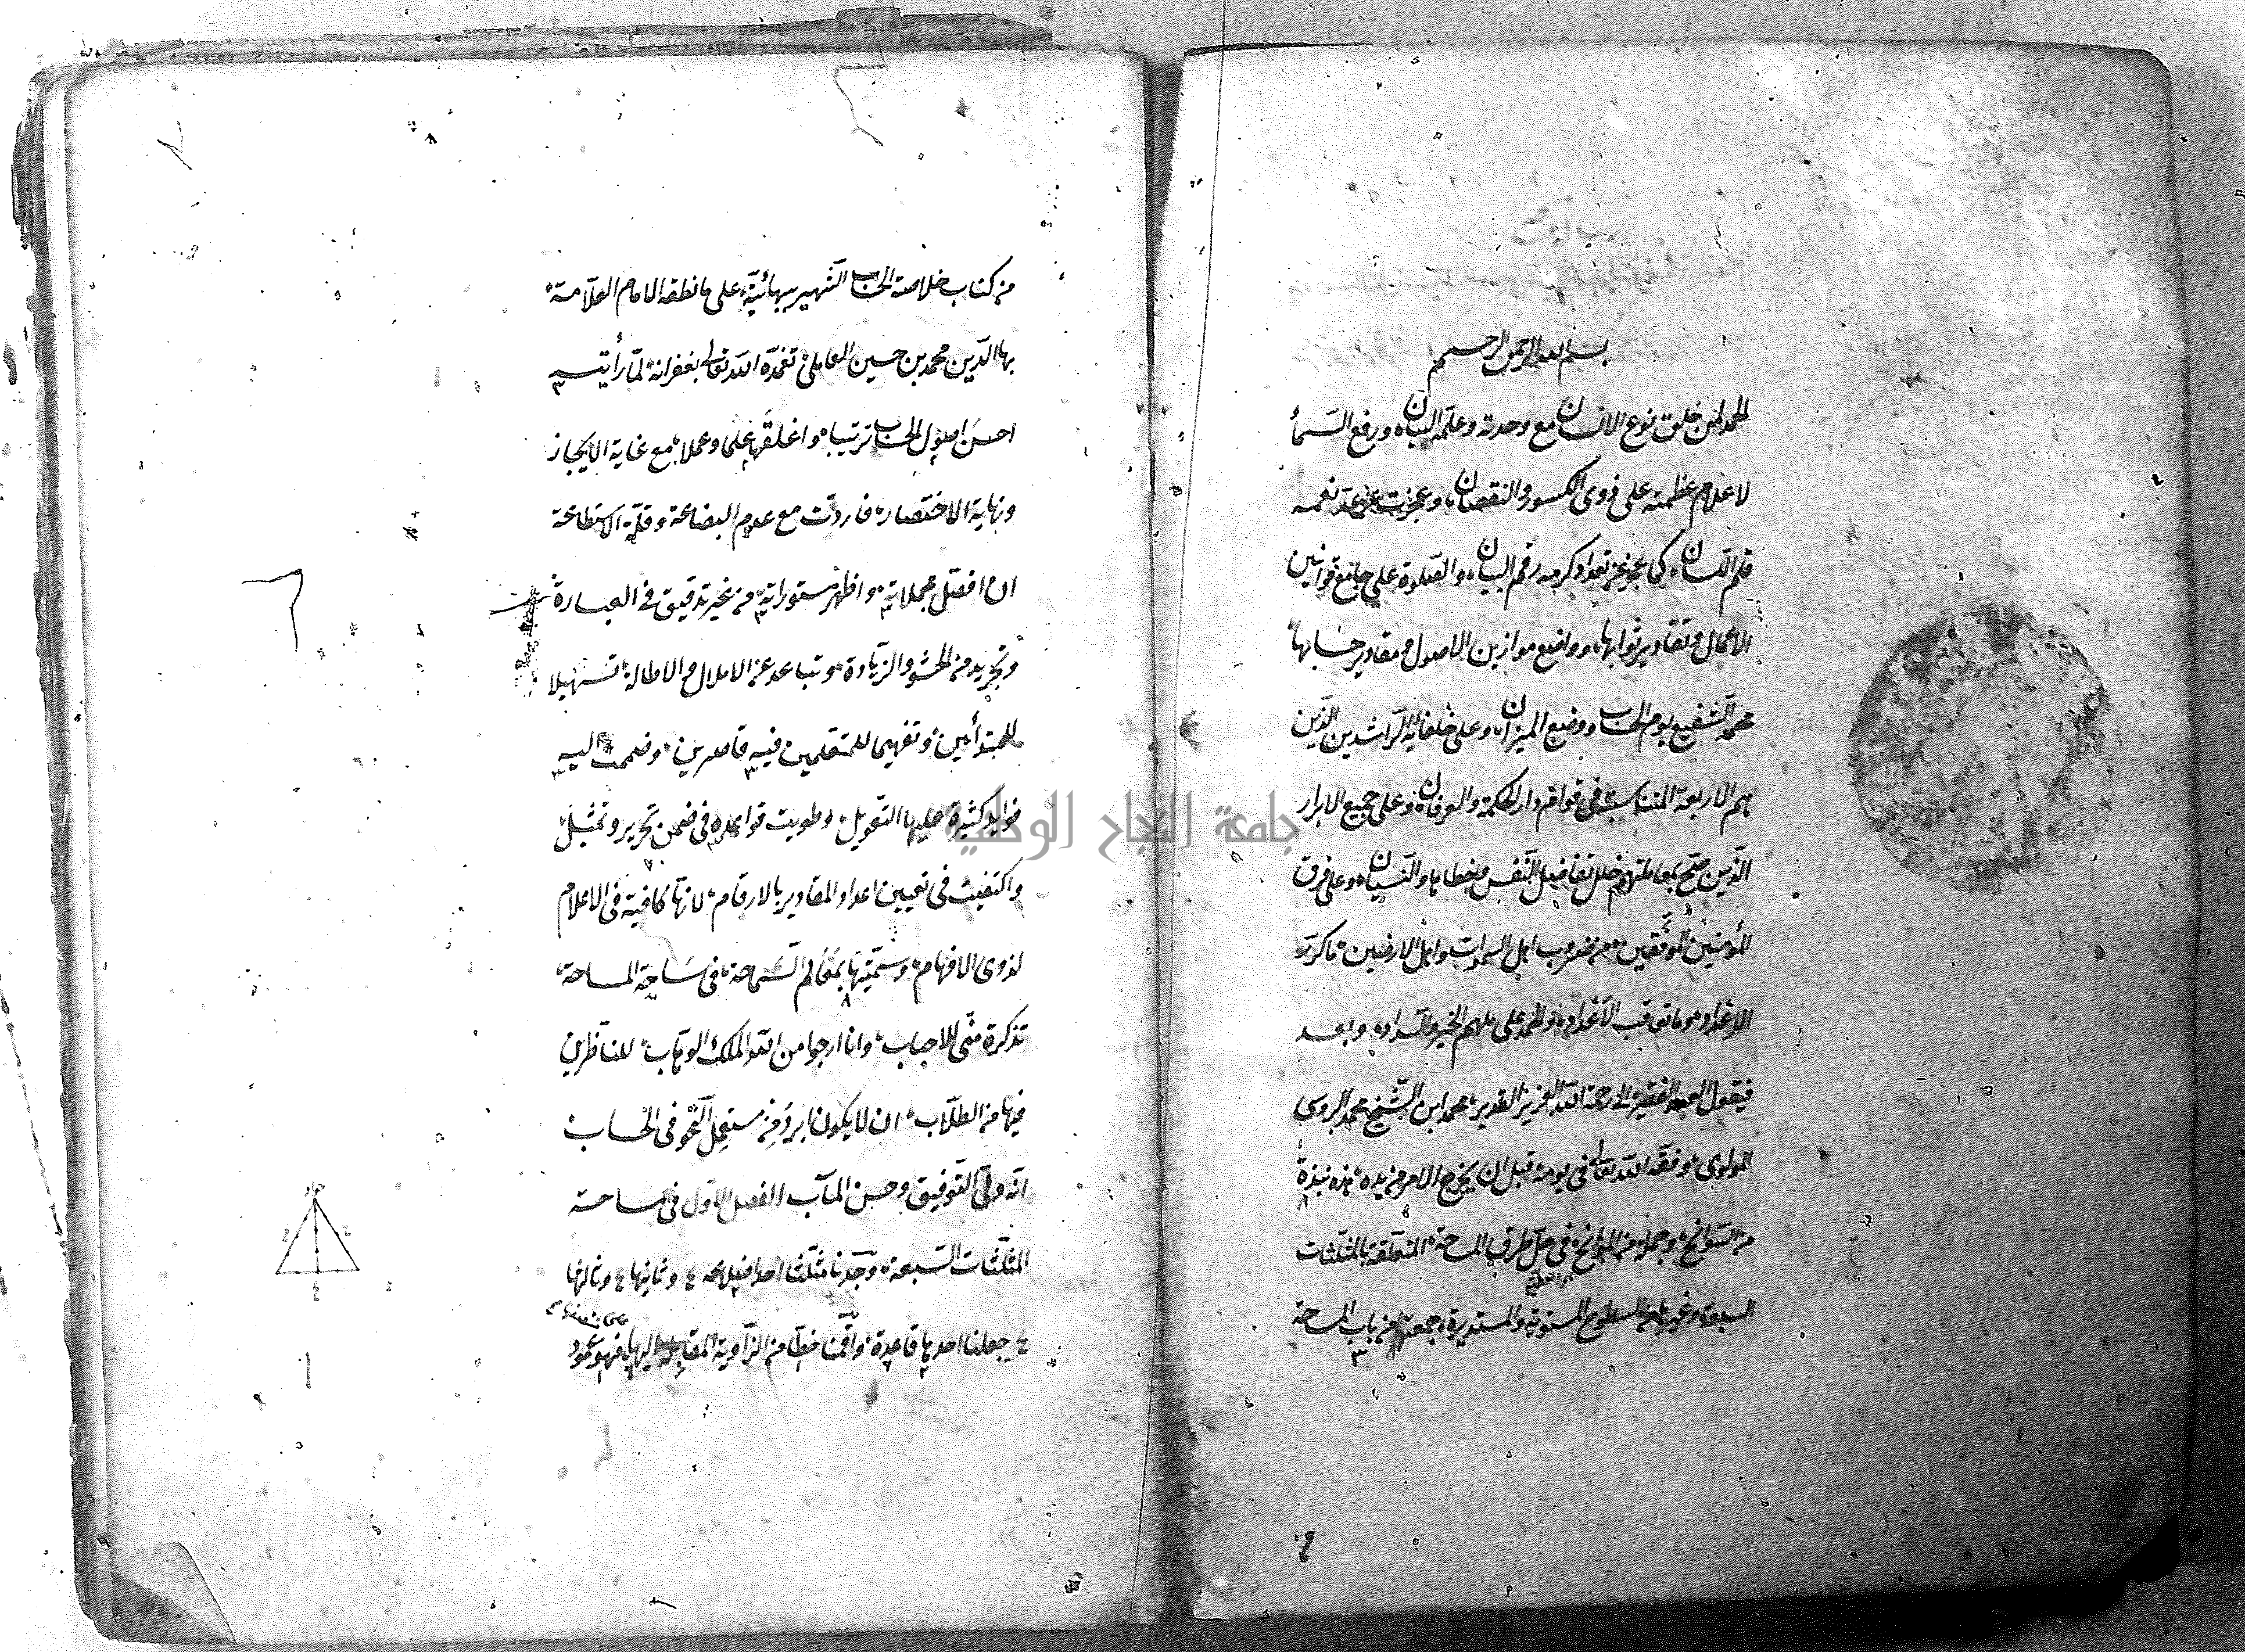 بسم الله الرحمن الرحيم
الحمد لمن خلق نوع الانسان مع وحدته وعلمه البيان ورفع السمأ
لاعلام عظمته على ذوى الكسور والنقصان وعجزت عن عد نعمه
قلم اللسان كما عجز عن تعداد كرمه رقم البيان والصلوة على جامع قوانين
الاعمال وتقادير ثوابها وواضع موازين الاصول ومقادير حسابها
محمد الشفيع يوم الحساب ووضع الميزان وعلى خلفائه الراشدين الذين
هم الاربعة المتناسبة فى قوائم دار الحكمة والعرفان وعلى جميع الابرار
الذين صح بمعاملتهم خلل تفاضيل النفس وخطاها والنسيان وعلى فرق
المؤمنين الموفقين من ضروب اهل السموات واهل الارضين ما كرر
الاعداد وما تعاقب الاعداد والحمد على ملهم الخير والسداد وابعد
فيقول العبد الفقير الى رحمة الله العزيز القدير محمد ابن الشيخ محمد الروسى
المولوى وفقه الله تعالى فى يومه قبل ان يخرج الامر من يده هذه نبذة
من السوانح وجملة من اللوائح فى حل طرق المساحة المتعلقة بالمثلثات
السبعة وغيرها من السطوح المستوية والمستديرة جمعتها من باب المساحة
من كتاب خلاصة الحساب الشهير ببهائية على ما نطقه الامام العلامة
بهاالدين محمد بن حسين العاملى تغمده الله تعالى بغفرانه لما رأيته
احسن اصول الحساب ترتيبا واغلقها علما وعملا مع غاية الايجاز
ونهاية الاختصار فاردت مع عدم البضاعة وقلة الاستطاعة
ان افصل مجملاته واظهر مستوراته من غير تدقيق فى العبارة
وتجريد من الحشو والزيادة وتباعد عن الاملال والاطالة تسهيلا
للمبتدأين وتفهيما للمتعلمين فيه قاصرين وضممت اليه
فوايد كثيرة عليها التعويل وطويت قواعده فى ضمن تحرير وتمثيل
واكتفيت فى تعيين اعداد المقادير بالارقام لانها كافية فى الاعلام
لذوى الافهام وسميتها بمعالم السماحة فى ساحة المساحة
تذكرة منى للاحباب وانا ارجوا من الله الملك الوهاب للناظرين
فيها من الطلاب ان لا يكونا برؤ من مستعمل النحو فى الحساب
انه ولى التوفيق وحسن المآب الفصل الاول فى مساحة
المثلثات السبعة وجدنا مثلثا احد اضلاعه ٤ وثانيها ٤ وثالثها
٤ جعلنا احديها قاعدة واقمنا خطا من الزاوية المقابلة اليها فهو عمود